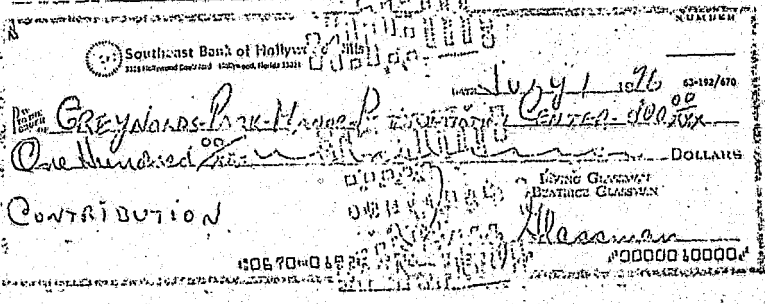 NUMBER
Southeast Bank of Hollywood Hills
Hollywood, Florida 33021
DATE July 1 1976 63-192/670
GREYNOLDS PARK MANOR CENTER $100 00/XX
One Hundred 00/xx DOLLARS
IRVING GLASSMAN
BEATRICE GLASSMAN
CONTRIBUTION
Glassman
⑈0000010000⑈